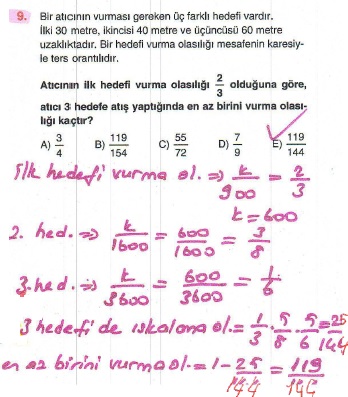 9. Bir atıcının vurması gereken üç farklı hedefi vardır.
İlki 30 metre, ikincisi 40 metre ve üçüncüsü 60 metre
uzaklıktadır. Bir hedefi vurma olasılığı mesafenin karesiy-
le ters orantılıdır.
Atıcının ilk hedefi vurma olasılığı 2/3 olduğuna göre,
atıcı 3 hedefe atış yaptığında en az birini vurma olası-
lığı kaçtır?
A) 3/4 B) 119/154 C) 55/72 D) 7/9 E) 119/144
İlk hedefi vurma ol. => k/900 = 2/3
k = 600
2. hed. => k/1600 = 600/1600 = 3/8
3. hed. => k/3600 = 600/3600 = 1/6
3 hedefi de ıskalama ol. = 1/3 . 5/8 . 5/6 = 25/144
en az birini vurma ol. = 1 - 25/144 = 119/144